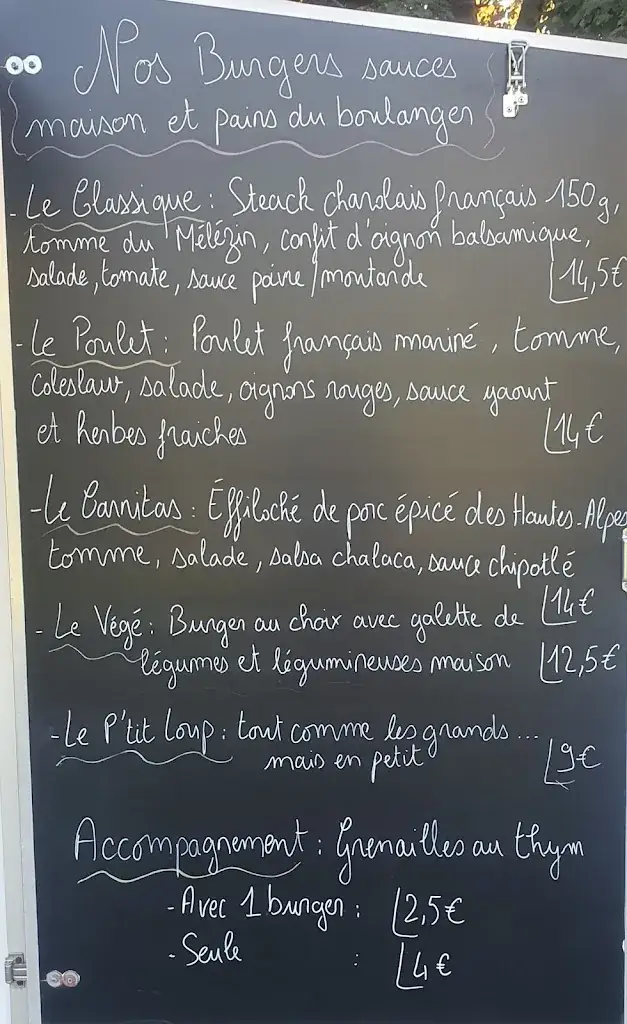 Nos Burgers sauces
maison et pains du boulanger
- Le Classique : Steack charolais français 150g,
tomme du Mélézin, confit d'oignon balsamique,
salade, tomate, sauce poivre/moutarde
14,5€
- Le Poulet : Poulet français mariné, tomme,
coleslaw, salade, oignons rouges, sauce yaourt
et herbes fraiches 14€
- Le Carnitas : Éffiloché de porc épicé des Hautes-Alpes
tomme, salade, salsa chalaca, sauce chipotlé
14€
- Le Végé : Burger au choix avec galette de
légumes et légumineuses maison 12,5€
- Le P'tit Loup : tout comme les grands...
mais en petit 9€
Accompagnement : Grenailles au thym
- Avec 1 burger : 2,5€
- Seule : 4€